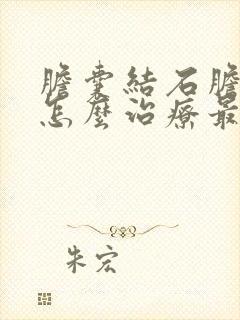 膽囊結石膽
怎麼治療最
朱宏